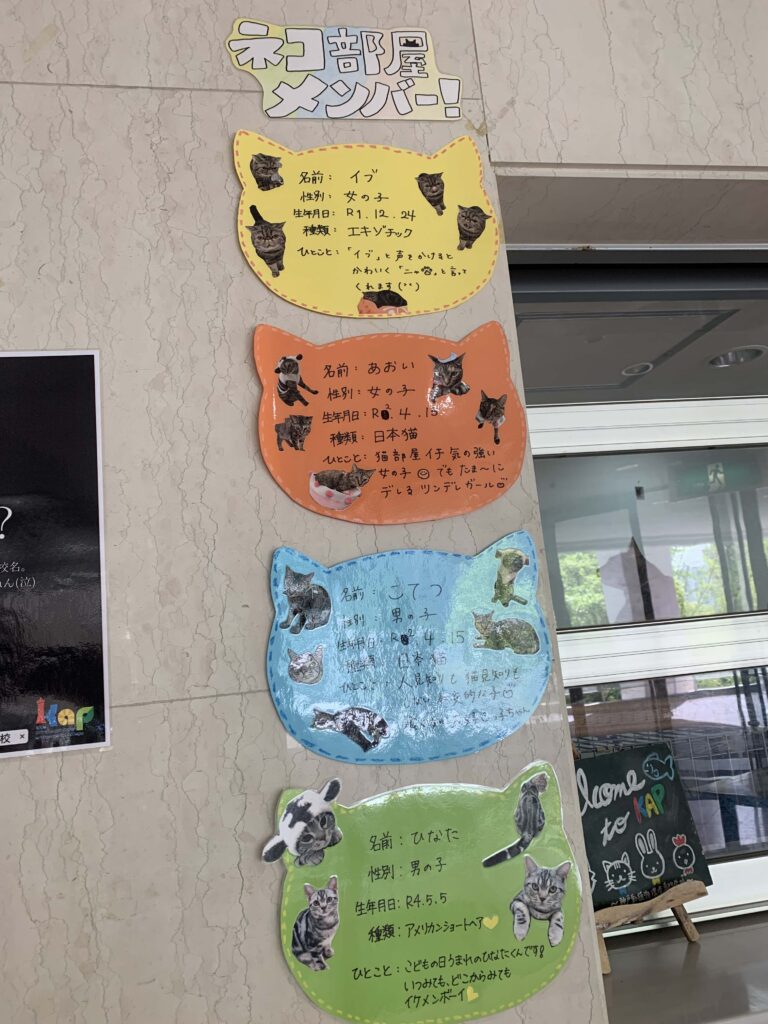 ネコ部屋
メンバー!
名前: イブ
性別: 女の子
生年月日: R1.12.24
種類: エキゾチック
ひとこと: 「イブ」と声をかけると
かわいく「ニャ〜」と言って
くれます(^^)
名前: あおい
性別: 女の子
生年月日: R2.4.15
種類: 日本猫
ひとこと: 猫部屋イチ気の強い
女の子 でもたま〜に
デレるツンデレガール
名前: こてつ
性別: 男の子
生年月日: R2.4.15
種類: 日本猫
ひとこと: 人見知りも猫見知りも
しない
名前: ひなた
性別: 男の子
生年月日: R4.5.5
種類: アメリカンショートヘア
ひとこと: こどもの日うまれのひなたくんです!
いつみても、どこからみても
イケメンボーイ
?
校名。
ん(泣)
kap
校 ×
lcome
to KAP